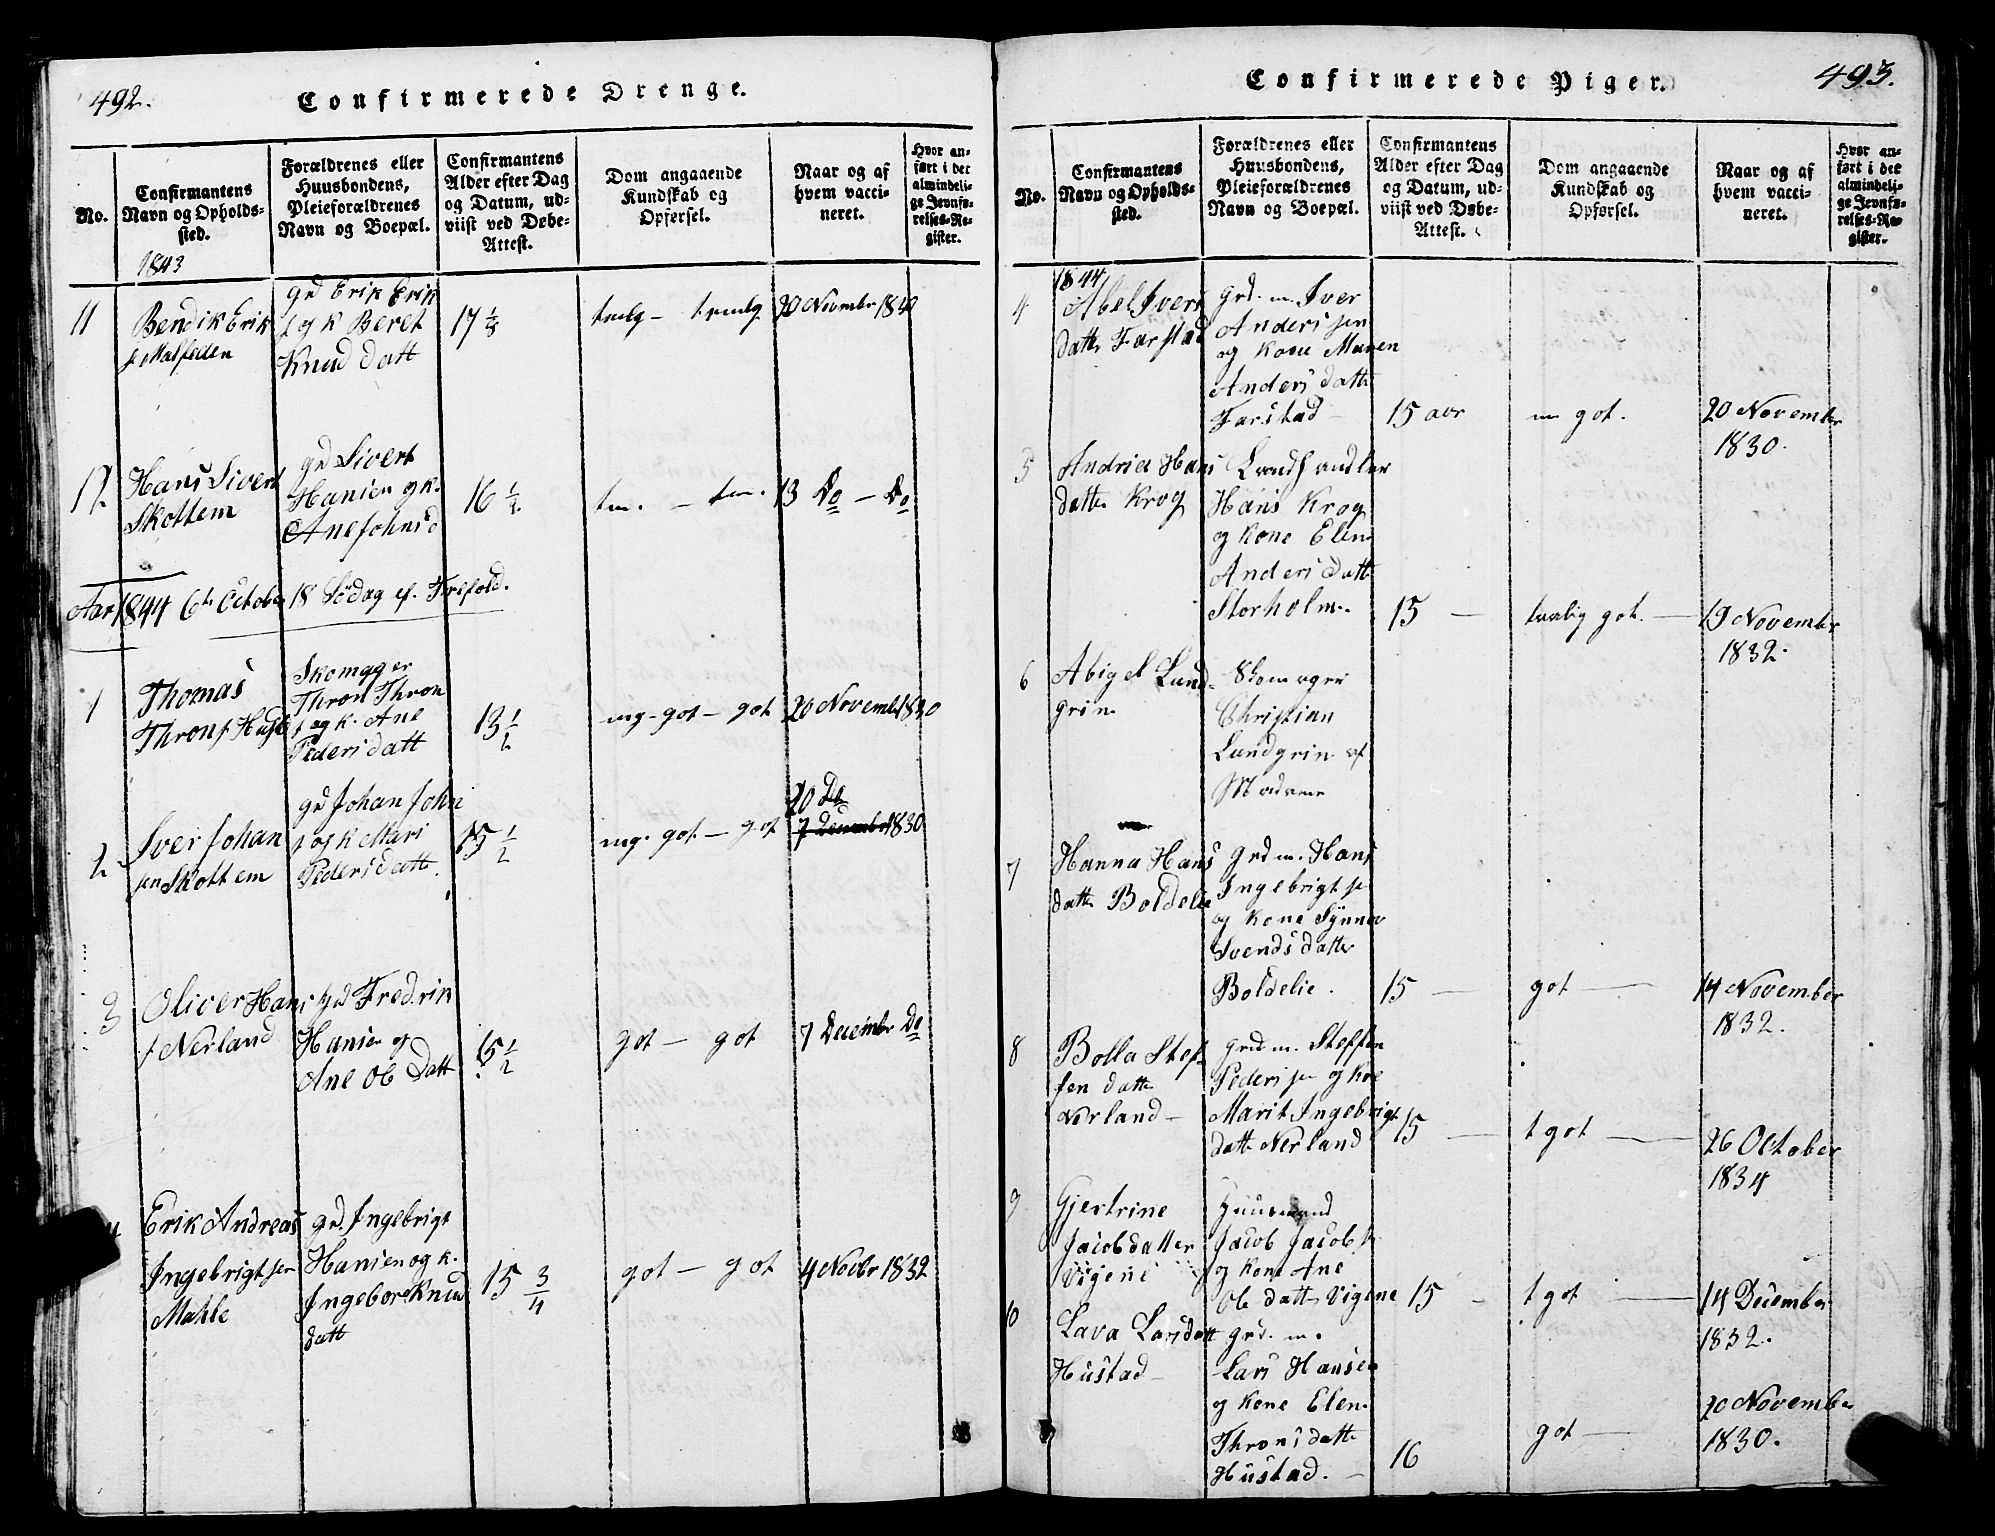 492.
Confirmerede Drenge.
No.
Confirmantens
Navn og Opholds-
sted.
Forældrenes eller
Huusbondens,
Pleieforældrenes
Navn og Boepæl.
Confirmantens
Alder efter Dag
og Datum, ud-
viist ved Døbe-
Attest.
Dom angaaende
Kundskab og
Opførsel.
Naar og af
hvem vacci-
neret.
Hvor an-
ført i det
almindeli-
ge Jevnfø-
relses-Re-
gister.
1843
11
Bendik Erik
Malfeden
gd Erik Erik
s og k Beret
Knud datt
17 1/2
20 Novembr 1840
12
Hans Sivert
Skottem
gd Sivert
Hansen og k.
Ane Johnsd
16 1/2
13 Do — Do
Aar 1844 6te October 18 Södag ef. Trefold.
1
Thomas
Throns Hust
Skomager
Thron Thron
s og k. Ane
Peders datt
13 1/2
mg. got — got
20 Novemb 1830
2
Iver Johan
sen Skottem
gd Johan John
s og k Mari
Peders datt.
15 1/2
mg. got — got
20 Do
7 Decembr 1830
3
Oliver Hans
s Nerland
gd Fredrik
Hansen og
Ane Ole Datt
15 1/2
got — got
7 Decembr Do
4
Erik Andreas
Ingebrigtsen
Mahle
gd. Ingebrigt
Hansen og k.
Ingebor Knud
datt
15 3/4
got — got
4 Novbr 1832
Confirmerede Piger.
493.
No.
Confirmantens
Navn og Opholds-
sted.
Forældrenes eller
Huusbondens,
Pleieforældrenes
Navn og Boepæl.
Confirmantens
Alder efter Dag
og Datum, ud-
viist ved Døbe-
Attest.
Dom angaaende
Kundskab og
Opførsel.
Naar og af
hvem vacci-
neret.
Hvor an-
ført i det
almindeli-
ge Jevnfø-
relses-Re-
gister.
1844
4
Abel Ivers
datter Farstad
grd. m. Iver
Anders sen
og kone Maren
Anders datter
Farstad
15 aar
m got.
20 November
1830.
5
Andrea Hans
datter Krog
Landhandler
Hans Krog
og kone Elen
Anders datter
Storholm.
15 —
taalig got. —
19 November
1832.
6
Abigel Lund-
grin
Skomager
Christian
Lundgrin af
7
Hanna Hans
datter Boldelie
grd m. Hans
Ingebrigt sen
og kone Synnev
Svends datter
Boldelie.
15 —
got —
14 November
1832.
8
Bolla Stef
fen datter
Nerland —
grd m. Steffen
Peders sen og kone
Marit Ingebrigt
datter Nerland
15 —
t got —
26 October
1834
9
Gjertrine
Jacobdatter
Vigene
Huusmand
Jacob Jacobs
og kone Ane
Ole datter Vigene
15 —
t got —
14 December
1832.
10
Lava Larsdatt
Hustad —
grd. m.
Lars Hansen
og kone Elen
Throns datter
Hustad. —
16
got —
20 November
1830.